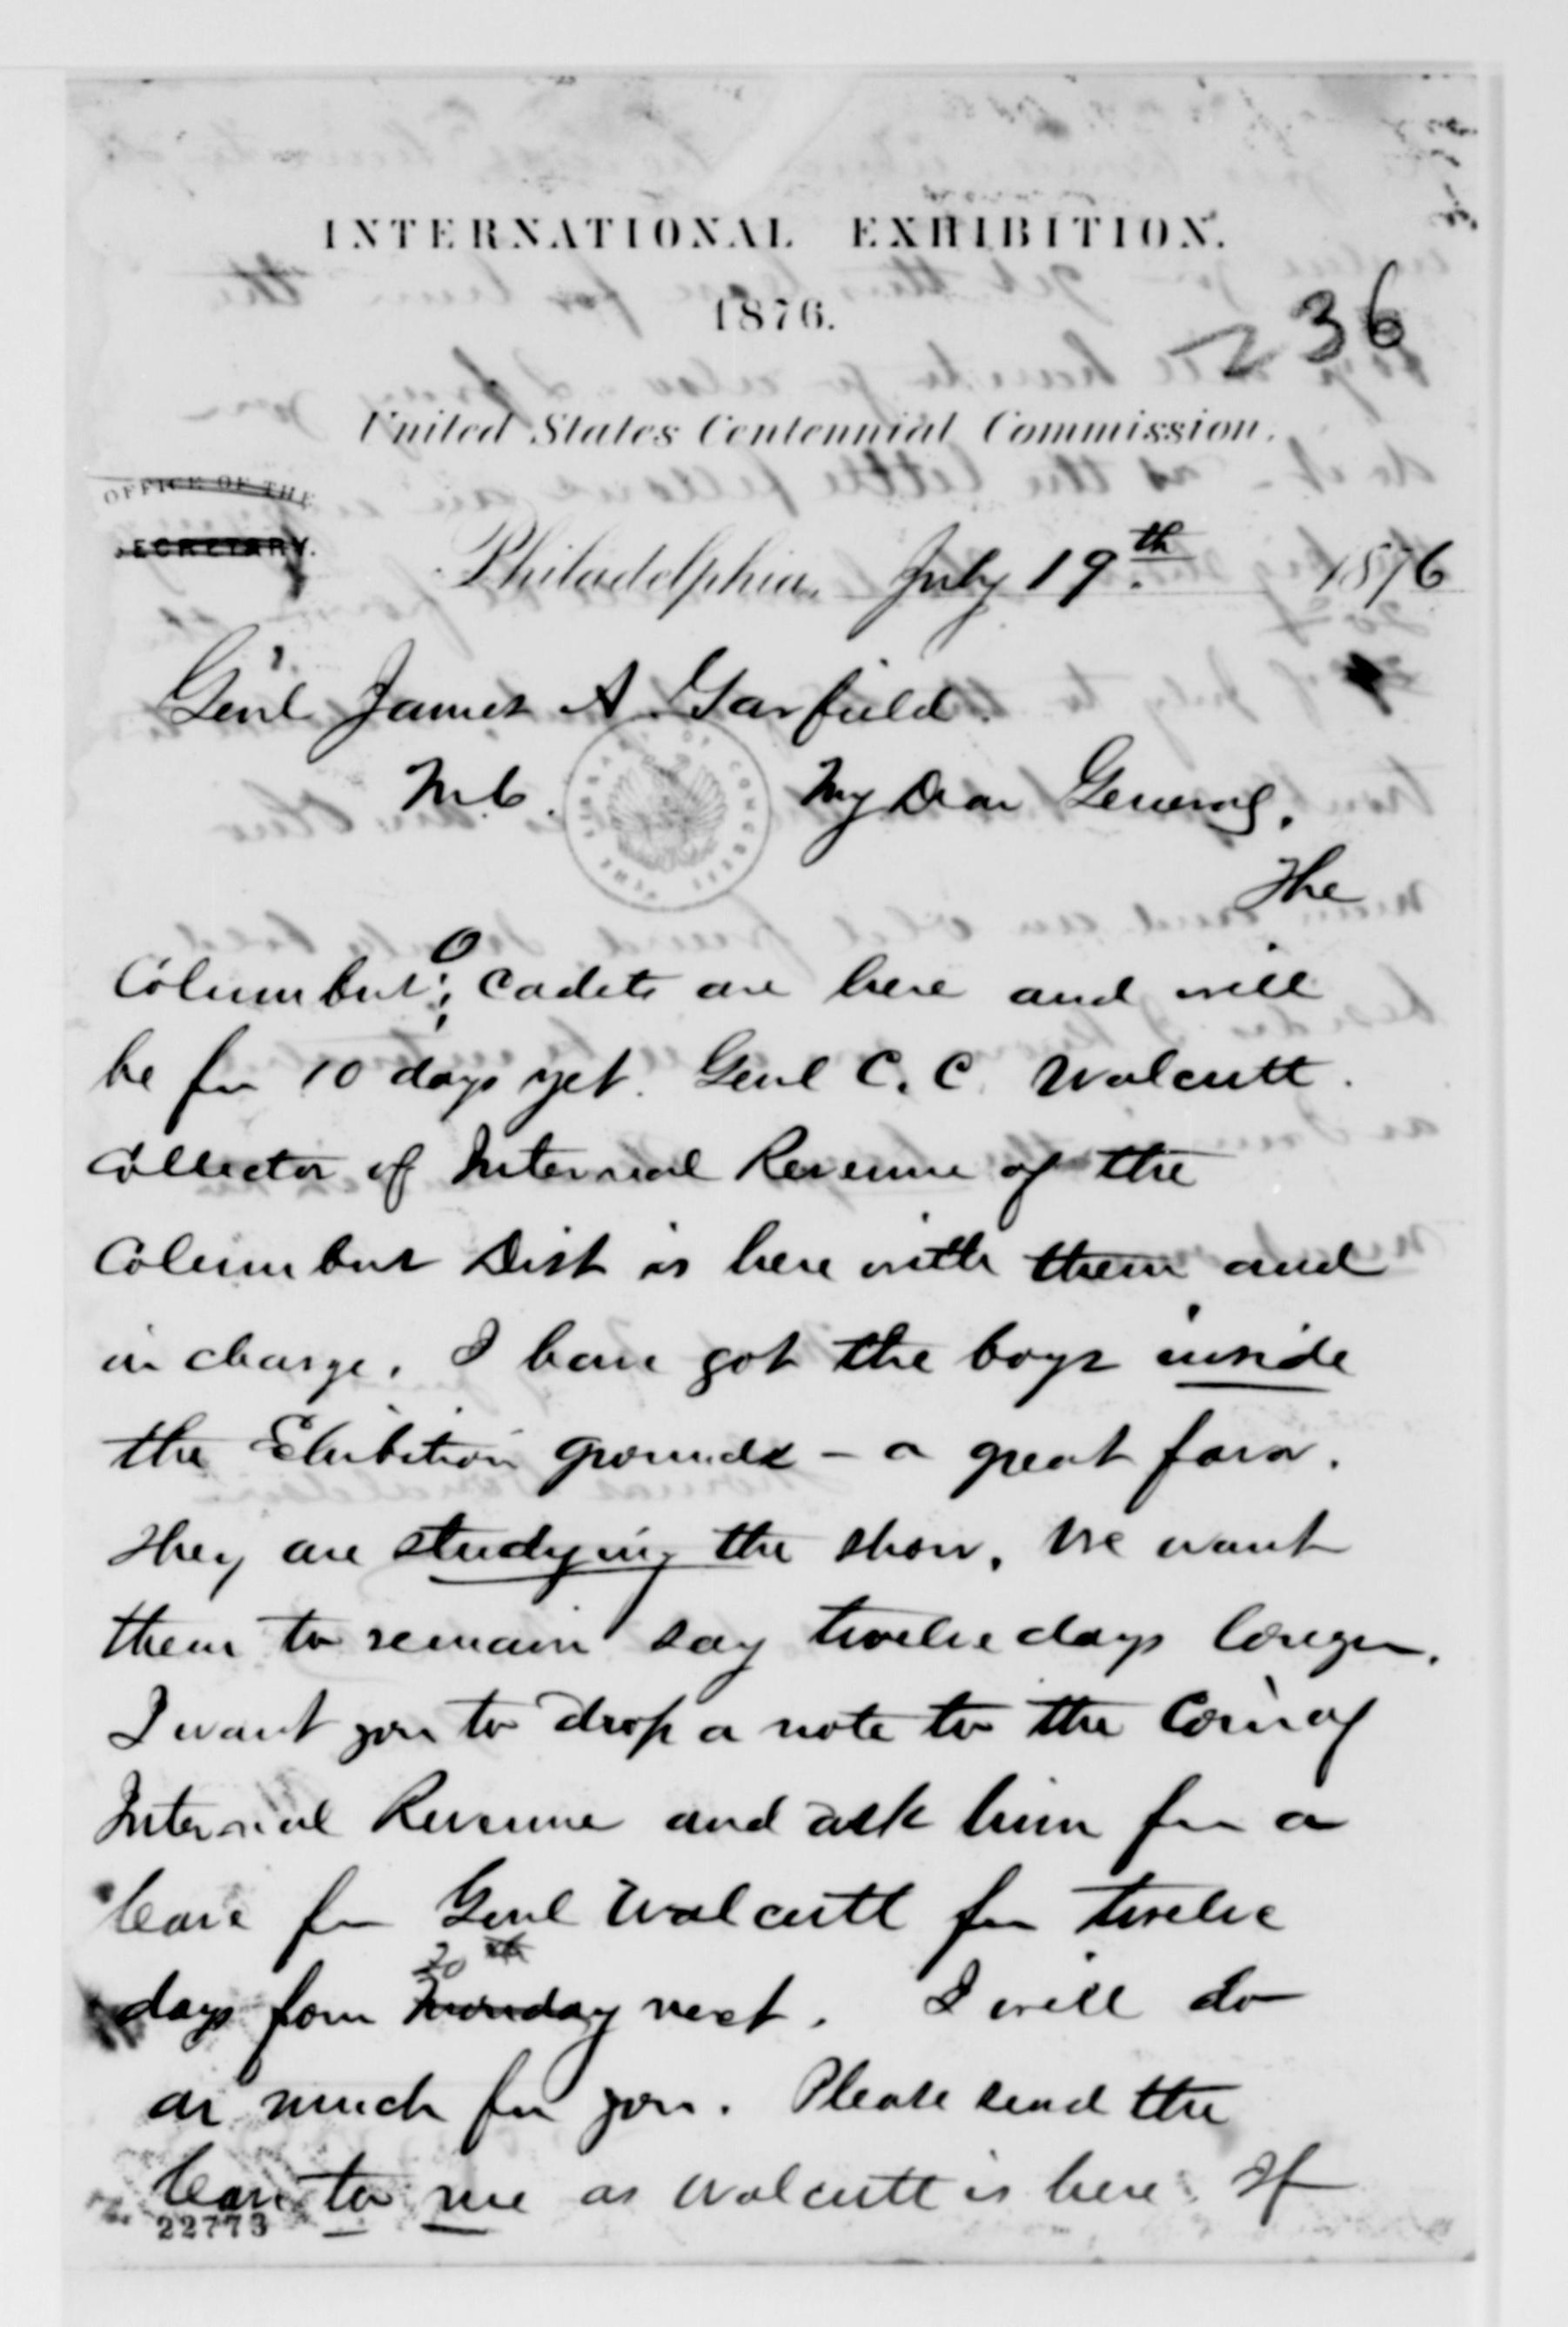 INTERNATIONAL EXHIBITION.
1876.
236
United States Centennial Commission.
OFFICE OF THE
SECRETARY.
Philadelphia, July 19th. 1876
Genl James A. Garfield.
M.C. My Dear General,
The
Columbus, O, Cadets are here and will
be for 10 days yet. Genl C. C. Walcutt.
Collector of Internal Revenue of the
Columbus Dist is here with them and
in charge. I have got the boys inside
the Exhibition grounds – a great favor.
They are studying the show. We want
them to remain say twelve days longer.
I want you to drop a note to the Com of
Internal Revenue and ask him for a
leave for Genl Walcutt for twelve
20th
days from Monday next. I will do
as much for you. Please send the
leave to me as Walcutt is here. If
22773